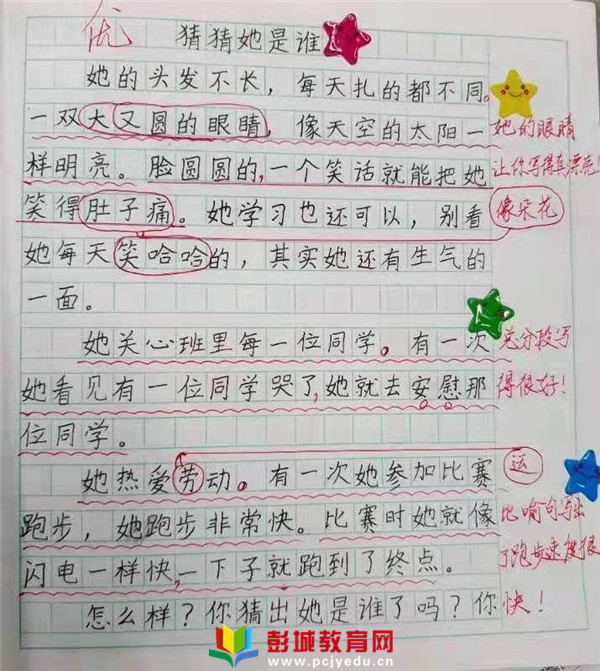 优 猜猜她是谁
她的头发不长，每天扎的都不同。
一双大又圆的眼睛，像天空的太阳一 她的眼睛
样明亮。脸圆圆的，一个笑话就能把她 让你写得真漂亮！
笑得肚子痛。她学习也还可以，别看 像朵花
她每天笑哈哈的，其实她还有生气的
一面。
她关心班里每一位同学。有一次 总分段写
她看见有一位同学哭了，她就去安慰那 得很好！
位同学。
她热爱劳动。有一次她参加比赛 运
跑步，她跑步非常快。比赛时她就像 比喻句写出
闪电一样快，一下子就跑到了终点。 了跑步速度很
怎么样？你猜出她是谁了吗？你 快！
彭城教育网
www.pcjyedu.cn